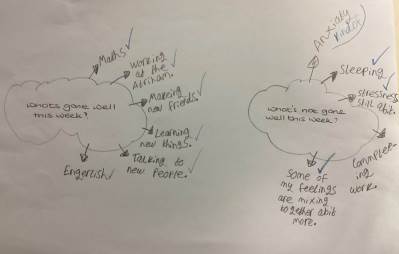 Maths
Working
at the
Atriham.
Makeing
new friends.
Learning
new things.
Talking to
new People.
Engerlish
whats gone well
this week?
Anxiaty
Sleeping
stressness
still abit.
Commpleet-
ing
work.
Some of
my feelings
are mixing
together abit
more.
what's not gone
well this week?